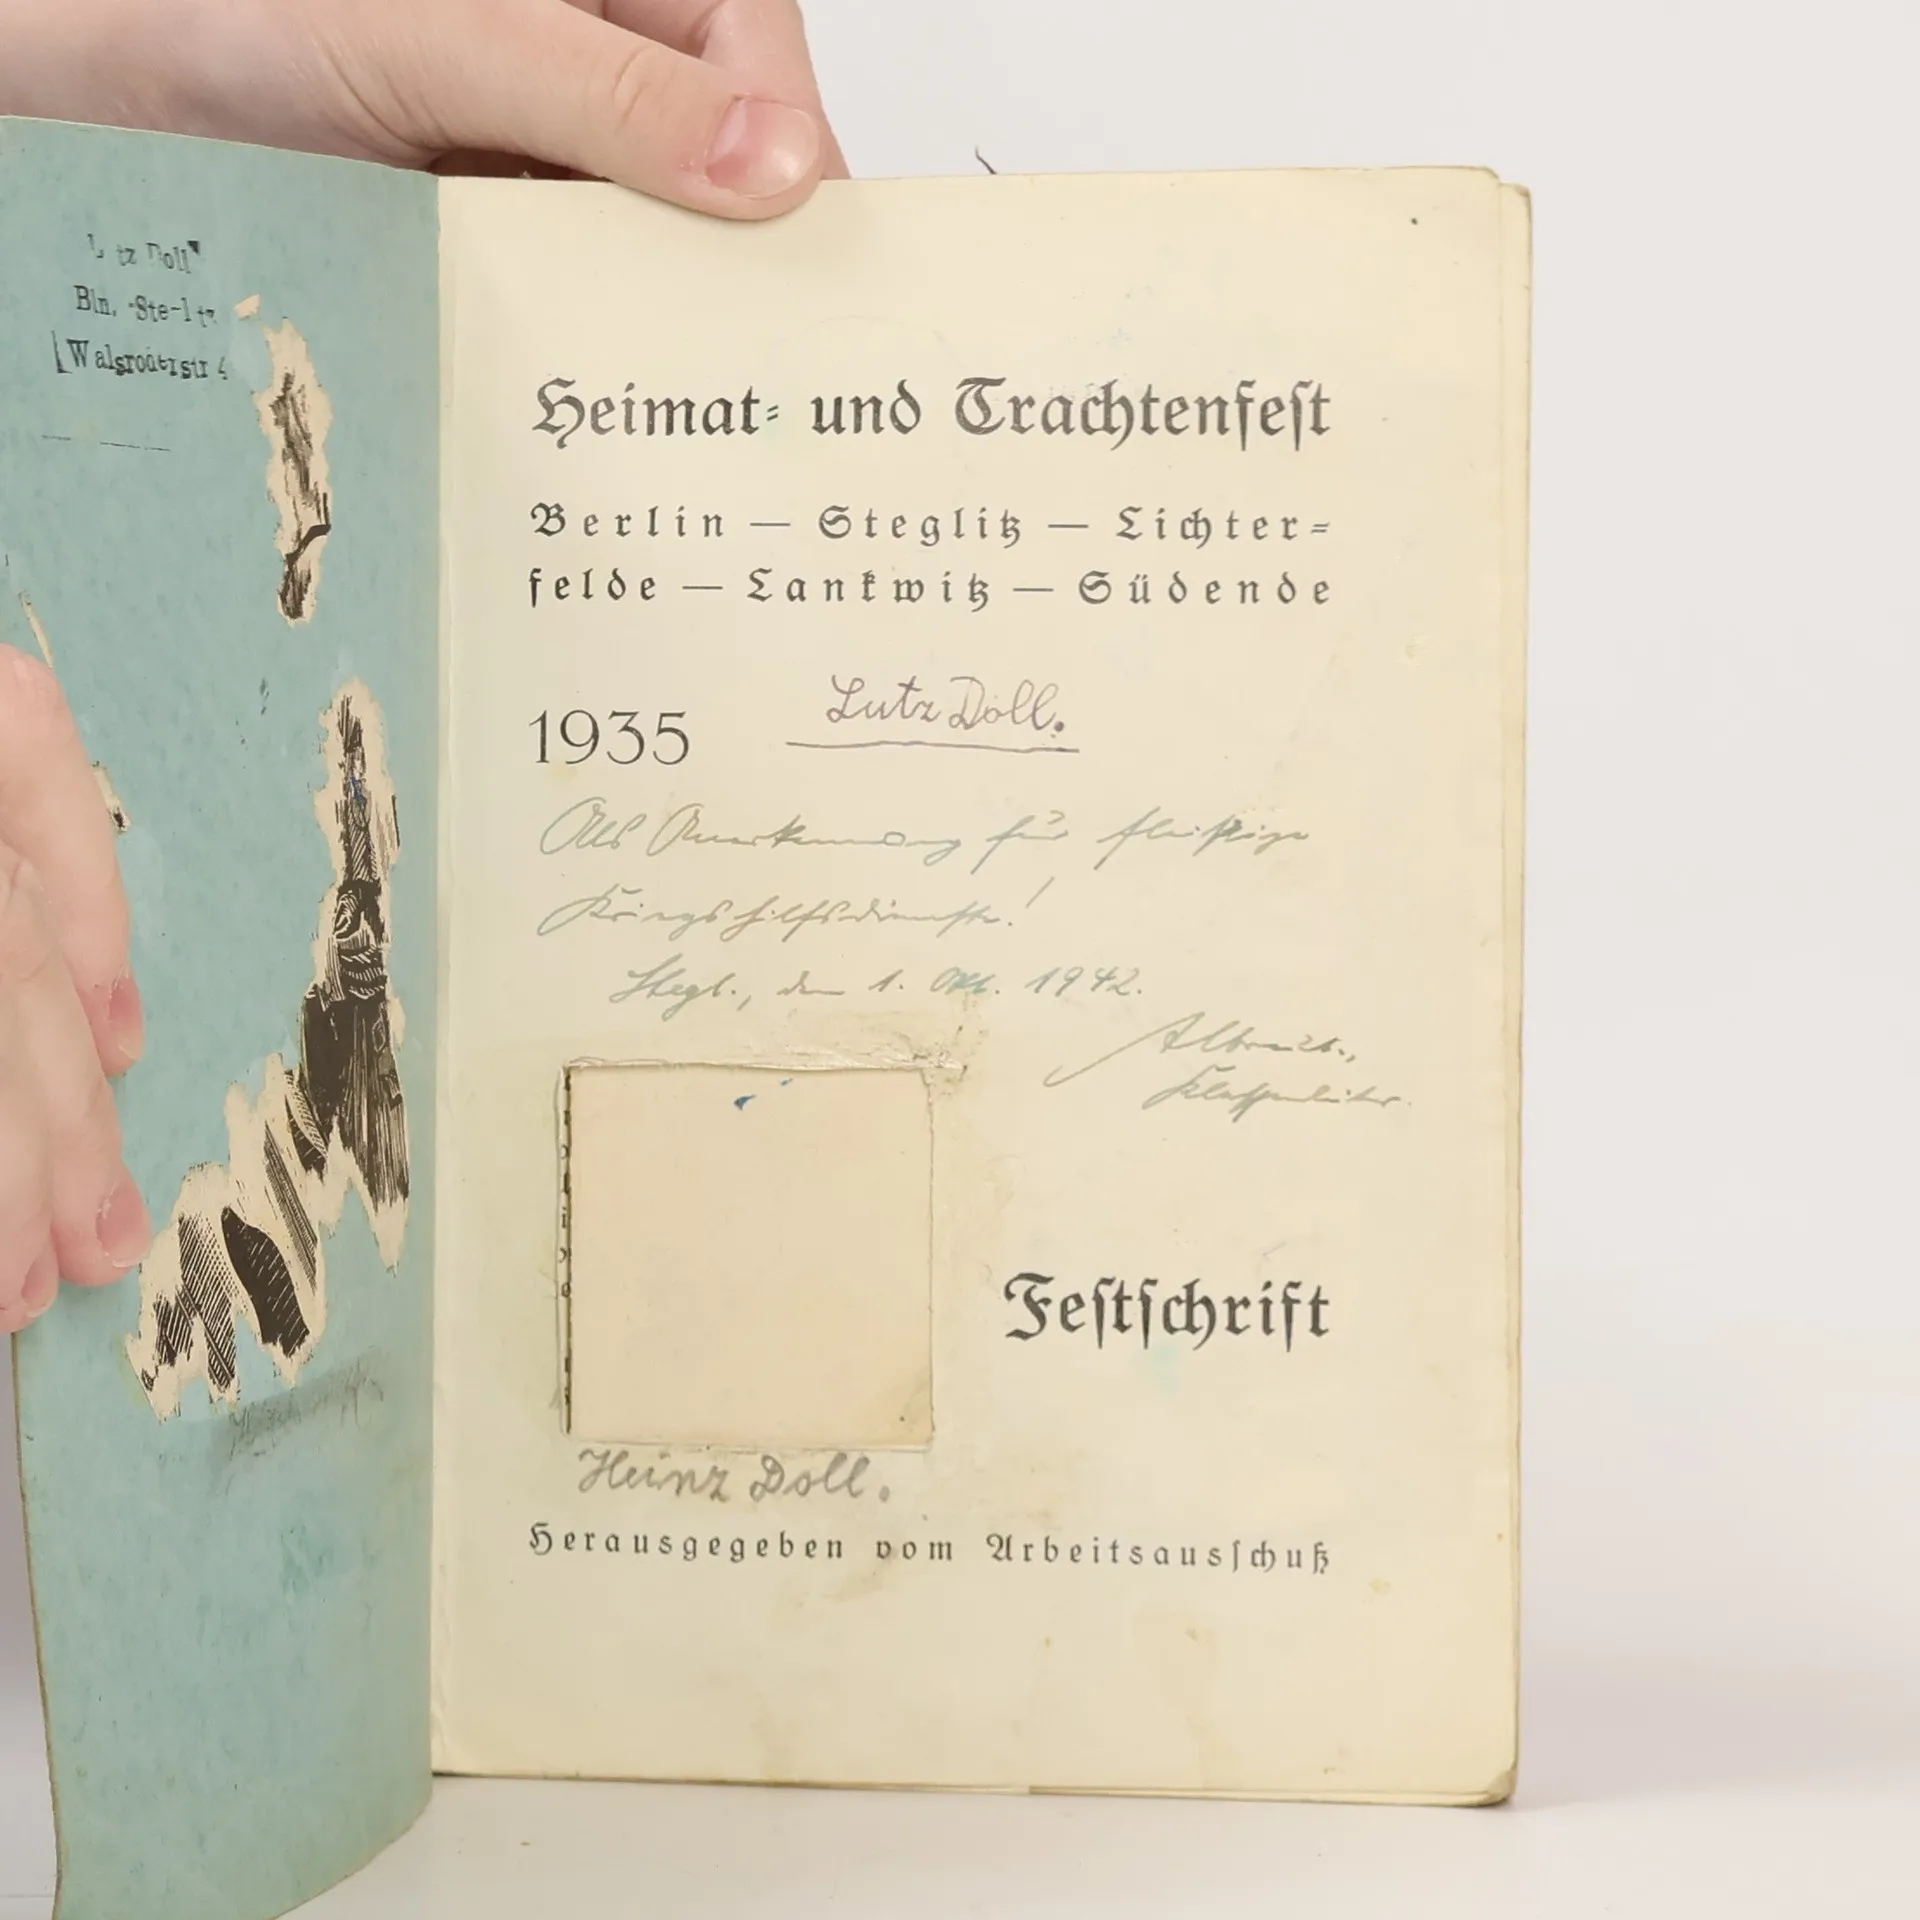 Bln.
Heimat- und Trachtenfest
Berlin — Steglitz — Lichter-
felde — Lankwitz — Südende
Lutz Doll.
1935
Als Anerkennung für fleißige
Kriegshilfsdienste!
Stegl., den 1. Okt. 1942.
Klassenleiter.
Festschrift
Heinz Doll.
Herausgegeben vom Arbeitsausschuß